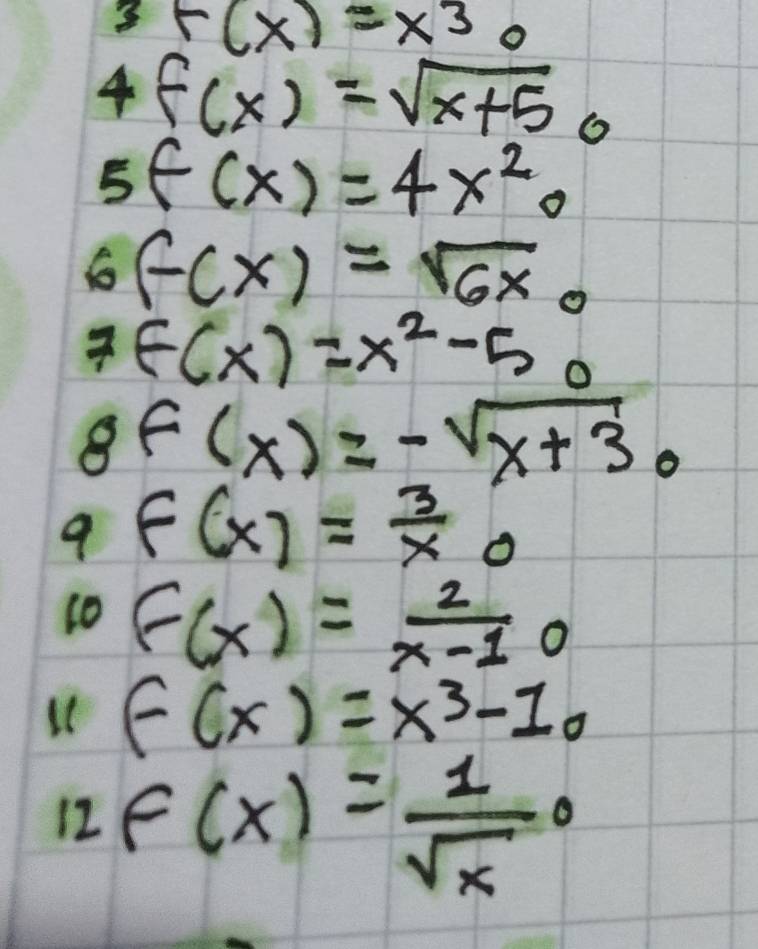 3 f(x) = x³.
4 f(x) = √(x+5).
5 f(x) = 4x².
6 f(x) = √(6x).
7 f(x) = x² - 5.
8 f(x) = -√(x+3).
9 f(x) = 3/x.
10 f(x) = 2/(x-1).
11 f(x) = x³-1.
12 f(x) = 1/√x.